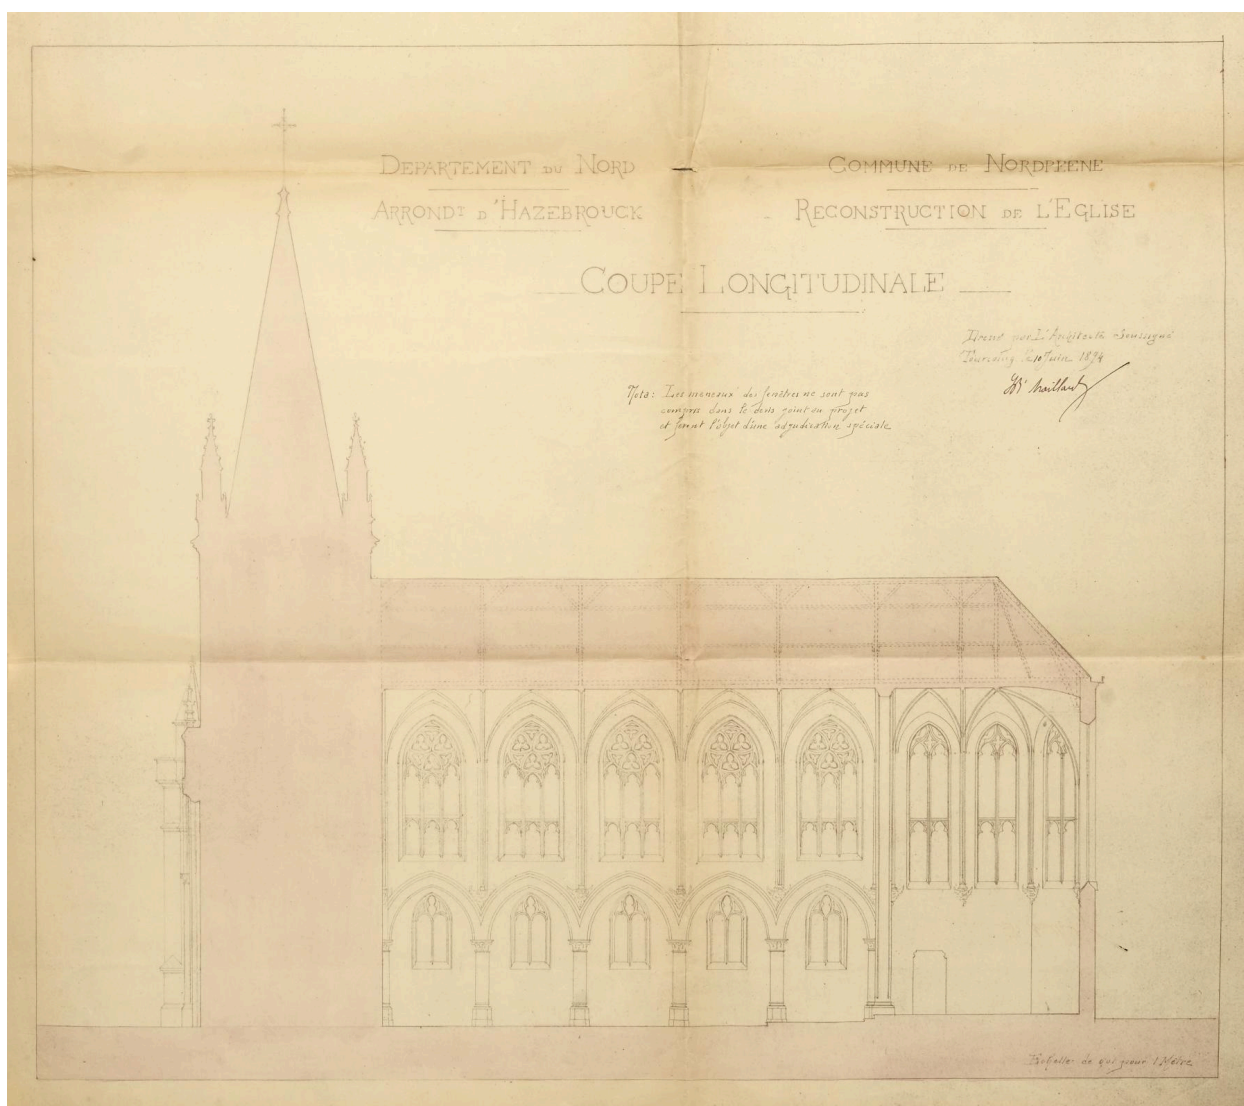 DEPARTEMENT DU NORD
ARRONDT D'HAZEBROUCK
COMMUNE DE NORDPEENE
RECONSTRUCTION DE L'EGLISE
COUPE LONGITUDINALE
Dressé par L'Architecte Soussigné
Tourcoing le 10 Juin 1894
Maillard
Nota: Les meneaux des fenêtres ne sont pas
compris dans le devis joint au projet
et feront l'objet d'une adjudication spéciale
Echelle de pour 1 Mètre